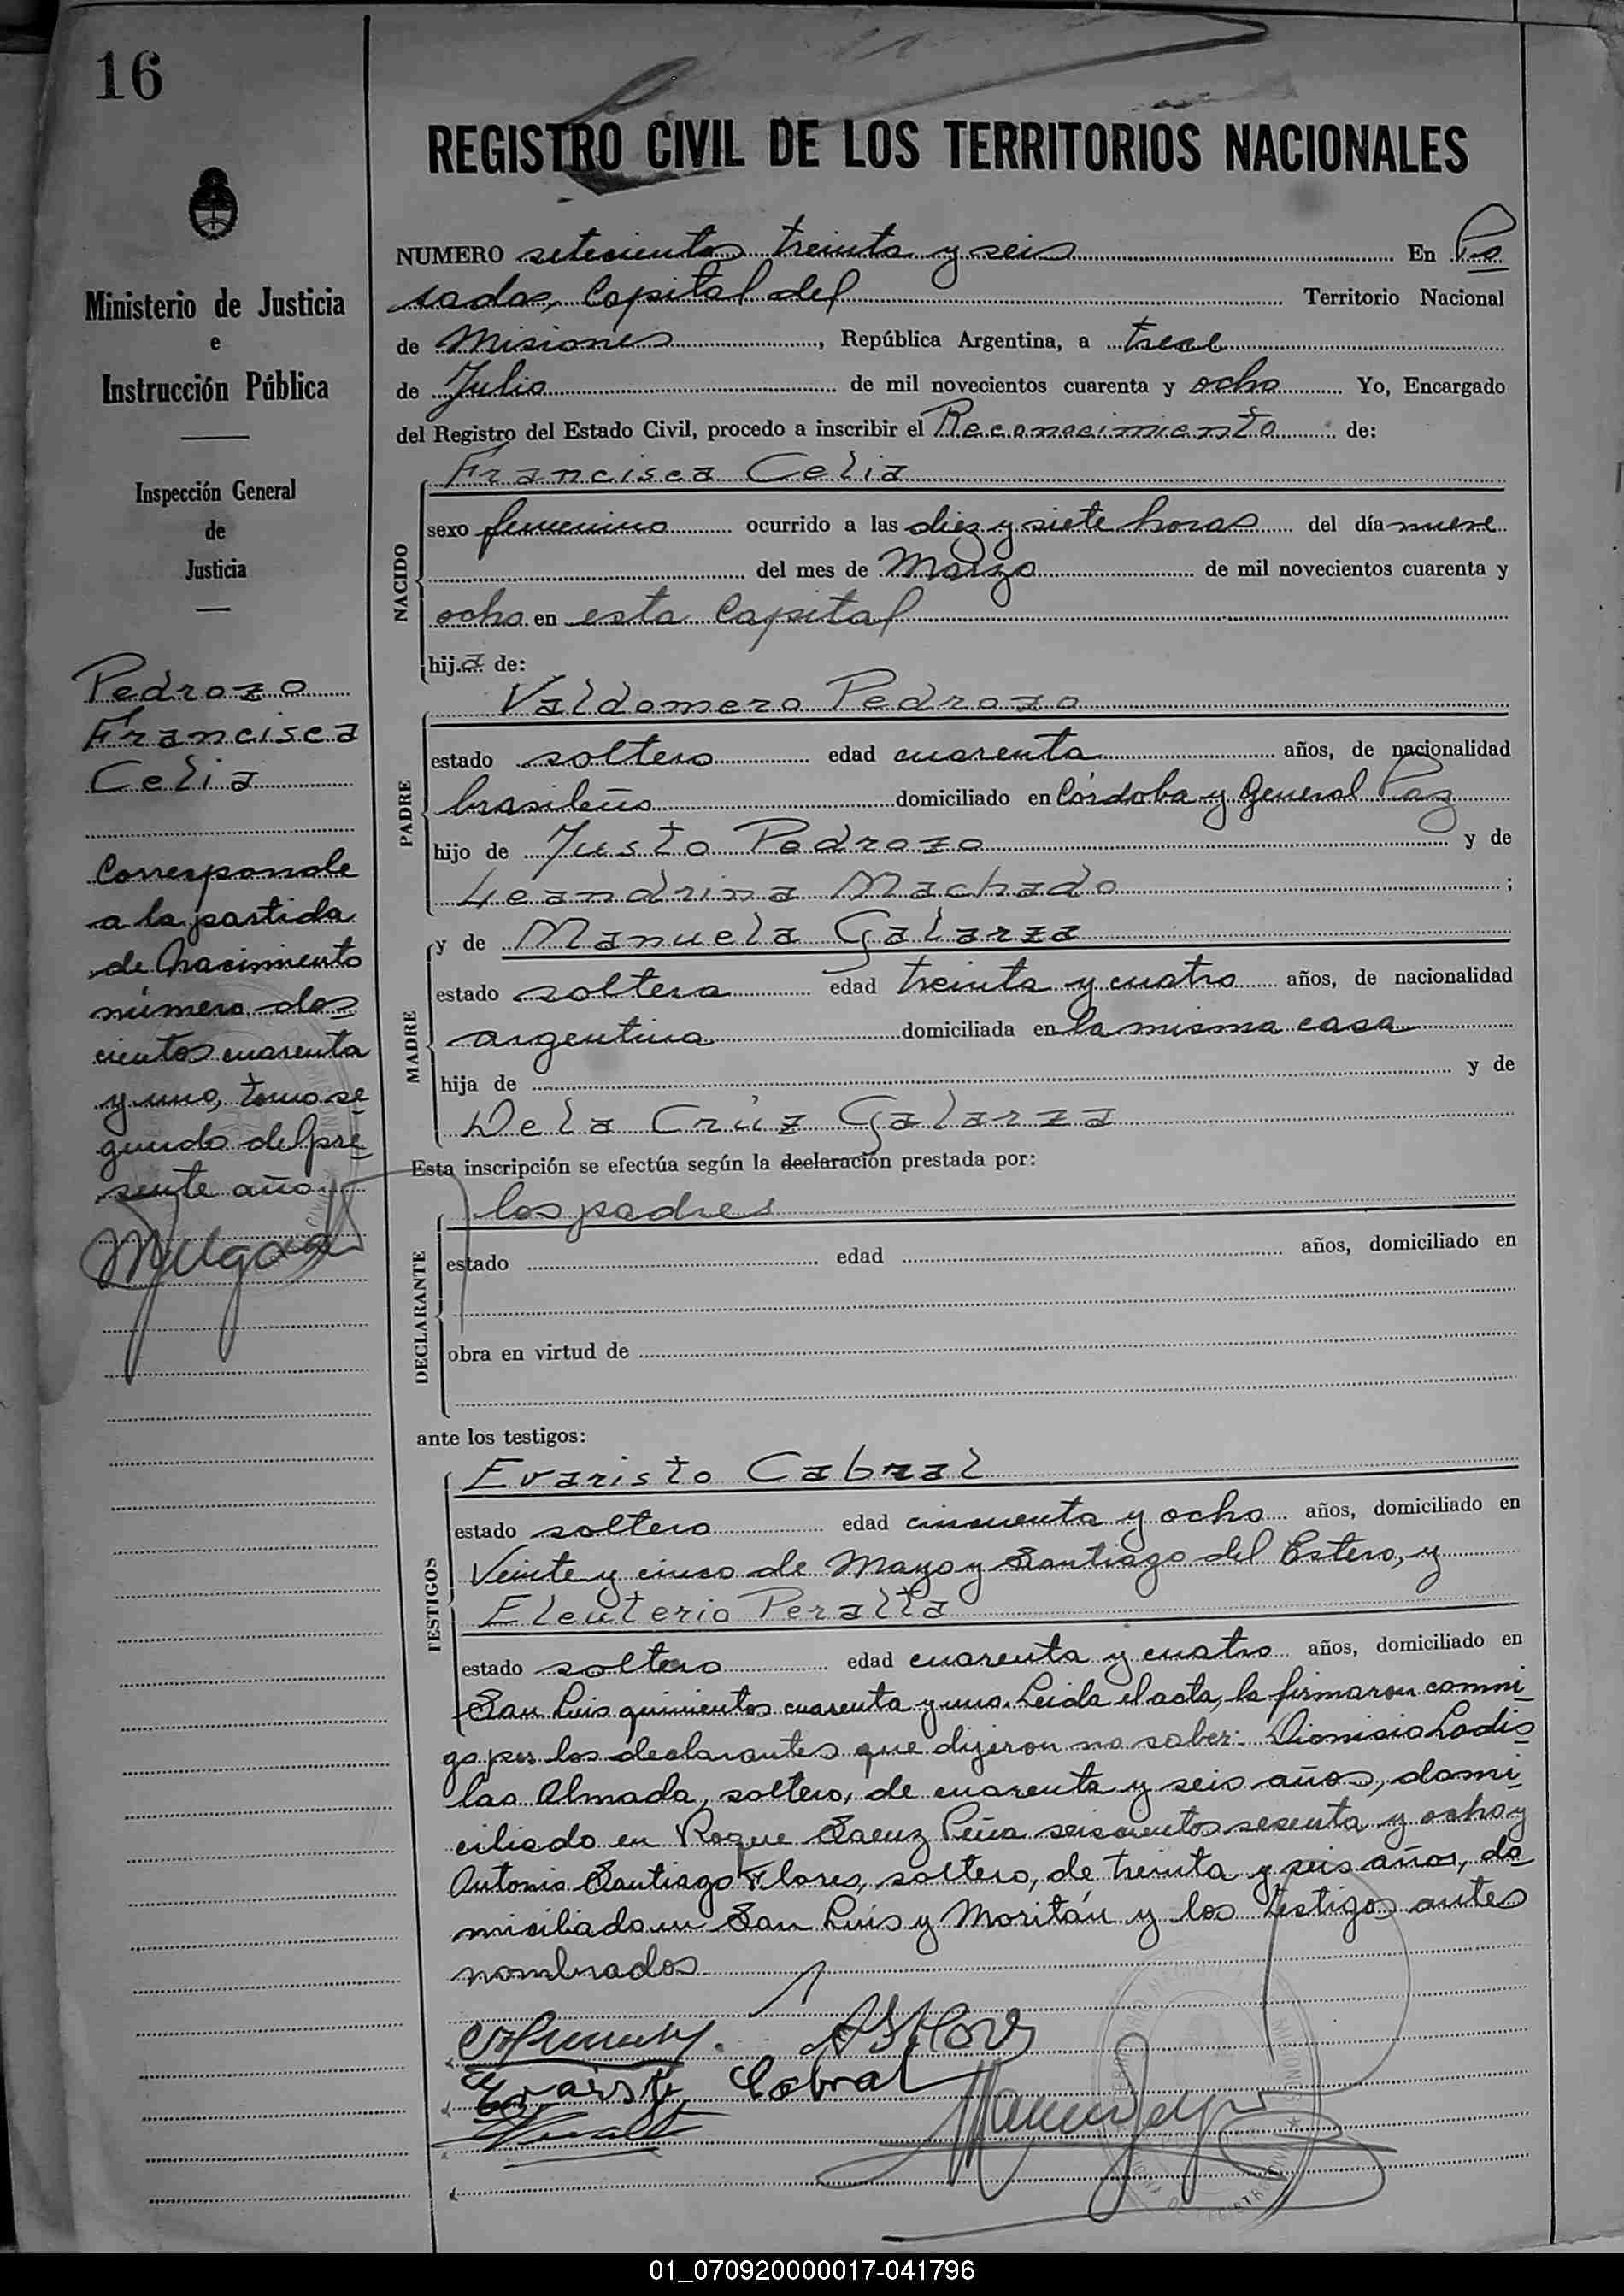 16
REGISTRO CIVIL DE LOS TERRITORIOS NACIONALES
Ministerio de Justicia
e
Instrucción Pública
Inspección General
de
Justicia
Pedrozo
Francisca
Celia
Corresponde
a la partida
de Nacimiento
número dos
cientos cuarenta
y uno, tomo se
gundo del pre
sente año
NUMERO setecientos treinta y seis En Po
sadas, Capital del Territorio Nacional
de Misiones, República Argentina, a trece
de Julio de mil novecientos cuarenta y ocho Yo, Encargado
del Registro del Estado Civil, procedo a inscribir el Reconocimiento de:
Francisca Celia
NACIDO
sexo femenino ocurrido a las diez y siete horas del día nueve
del mes de Marzo de mil novecientos cuarenta y
ocho en esta Capital
hija de:
Valdomero Pedrozo
PADRE
estado soltero edad cuarenta años, de nacionalidad
brasileño domiciliado en Córdoba y General Paz
hijo de Justo Pedrozo y de
Leandrina Machado ;
MADRE
y de Manuela Galarza
estado soltera edad treinta y cuatro años, de nacionalidad
argentina domiciliada en la misma casa
hija de y de
Dela Crúz Galarza
Esta inscripción se efectúa según la declaración prestada por:
los padres
DECLARANTE
estado edad años, domiciliado en
obra en virtud de
ante los testigos:
Evaristo Cabral
TESTIGOS
estado soltero edad cincuenta y ocho años, domiciliado en
Veinte y cinco de Mayo y Santiago del Estero, y
Eleuterio Peralta
estado soltero edad cuarenta y cuatro años, domiciliado en
San Luis quinientos cuarenta y uno. Leida el acta, la firmaron conmi
go por los declarantes que dijeron no saber: Dionisio Ladis
lao Almada, soltero, de cuarenta y seis años, domi
ciliado en Roque Saenz Peña seiscientos sesenta y ocho y
Antonio Santiago Flores, soltero, de treinta y seis años, do
miciliado en San Luis y Moritán y los testigos antes
nombrados
ASFlores
Evaristo Cabral
01_070920000017-041796